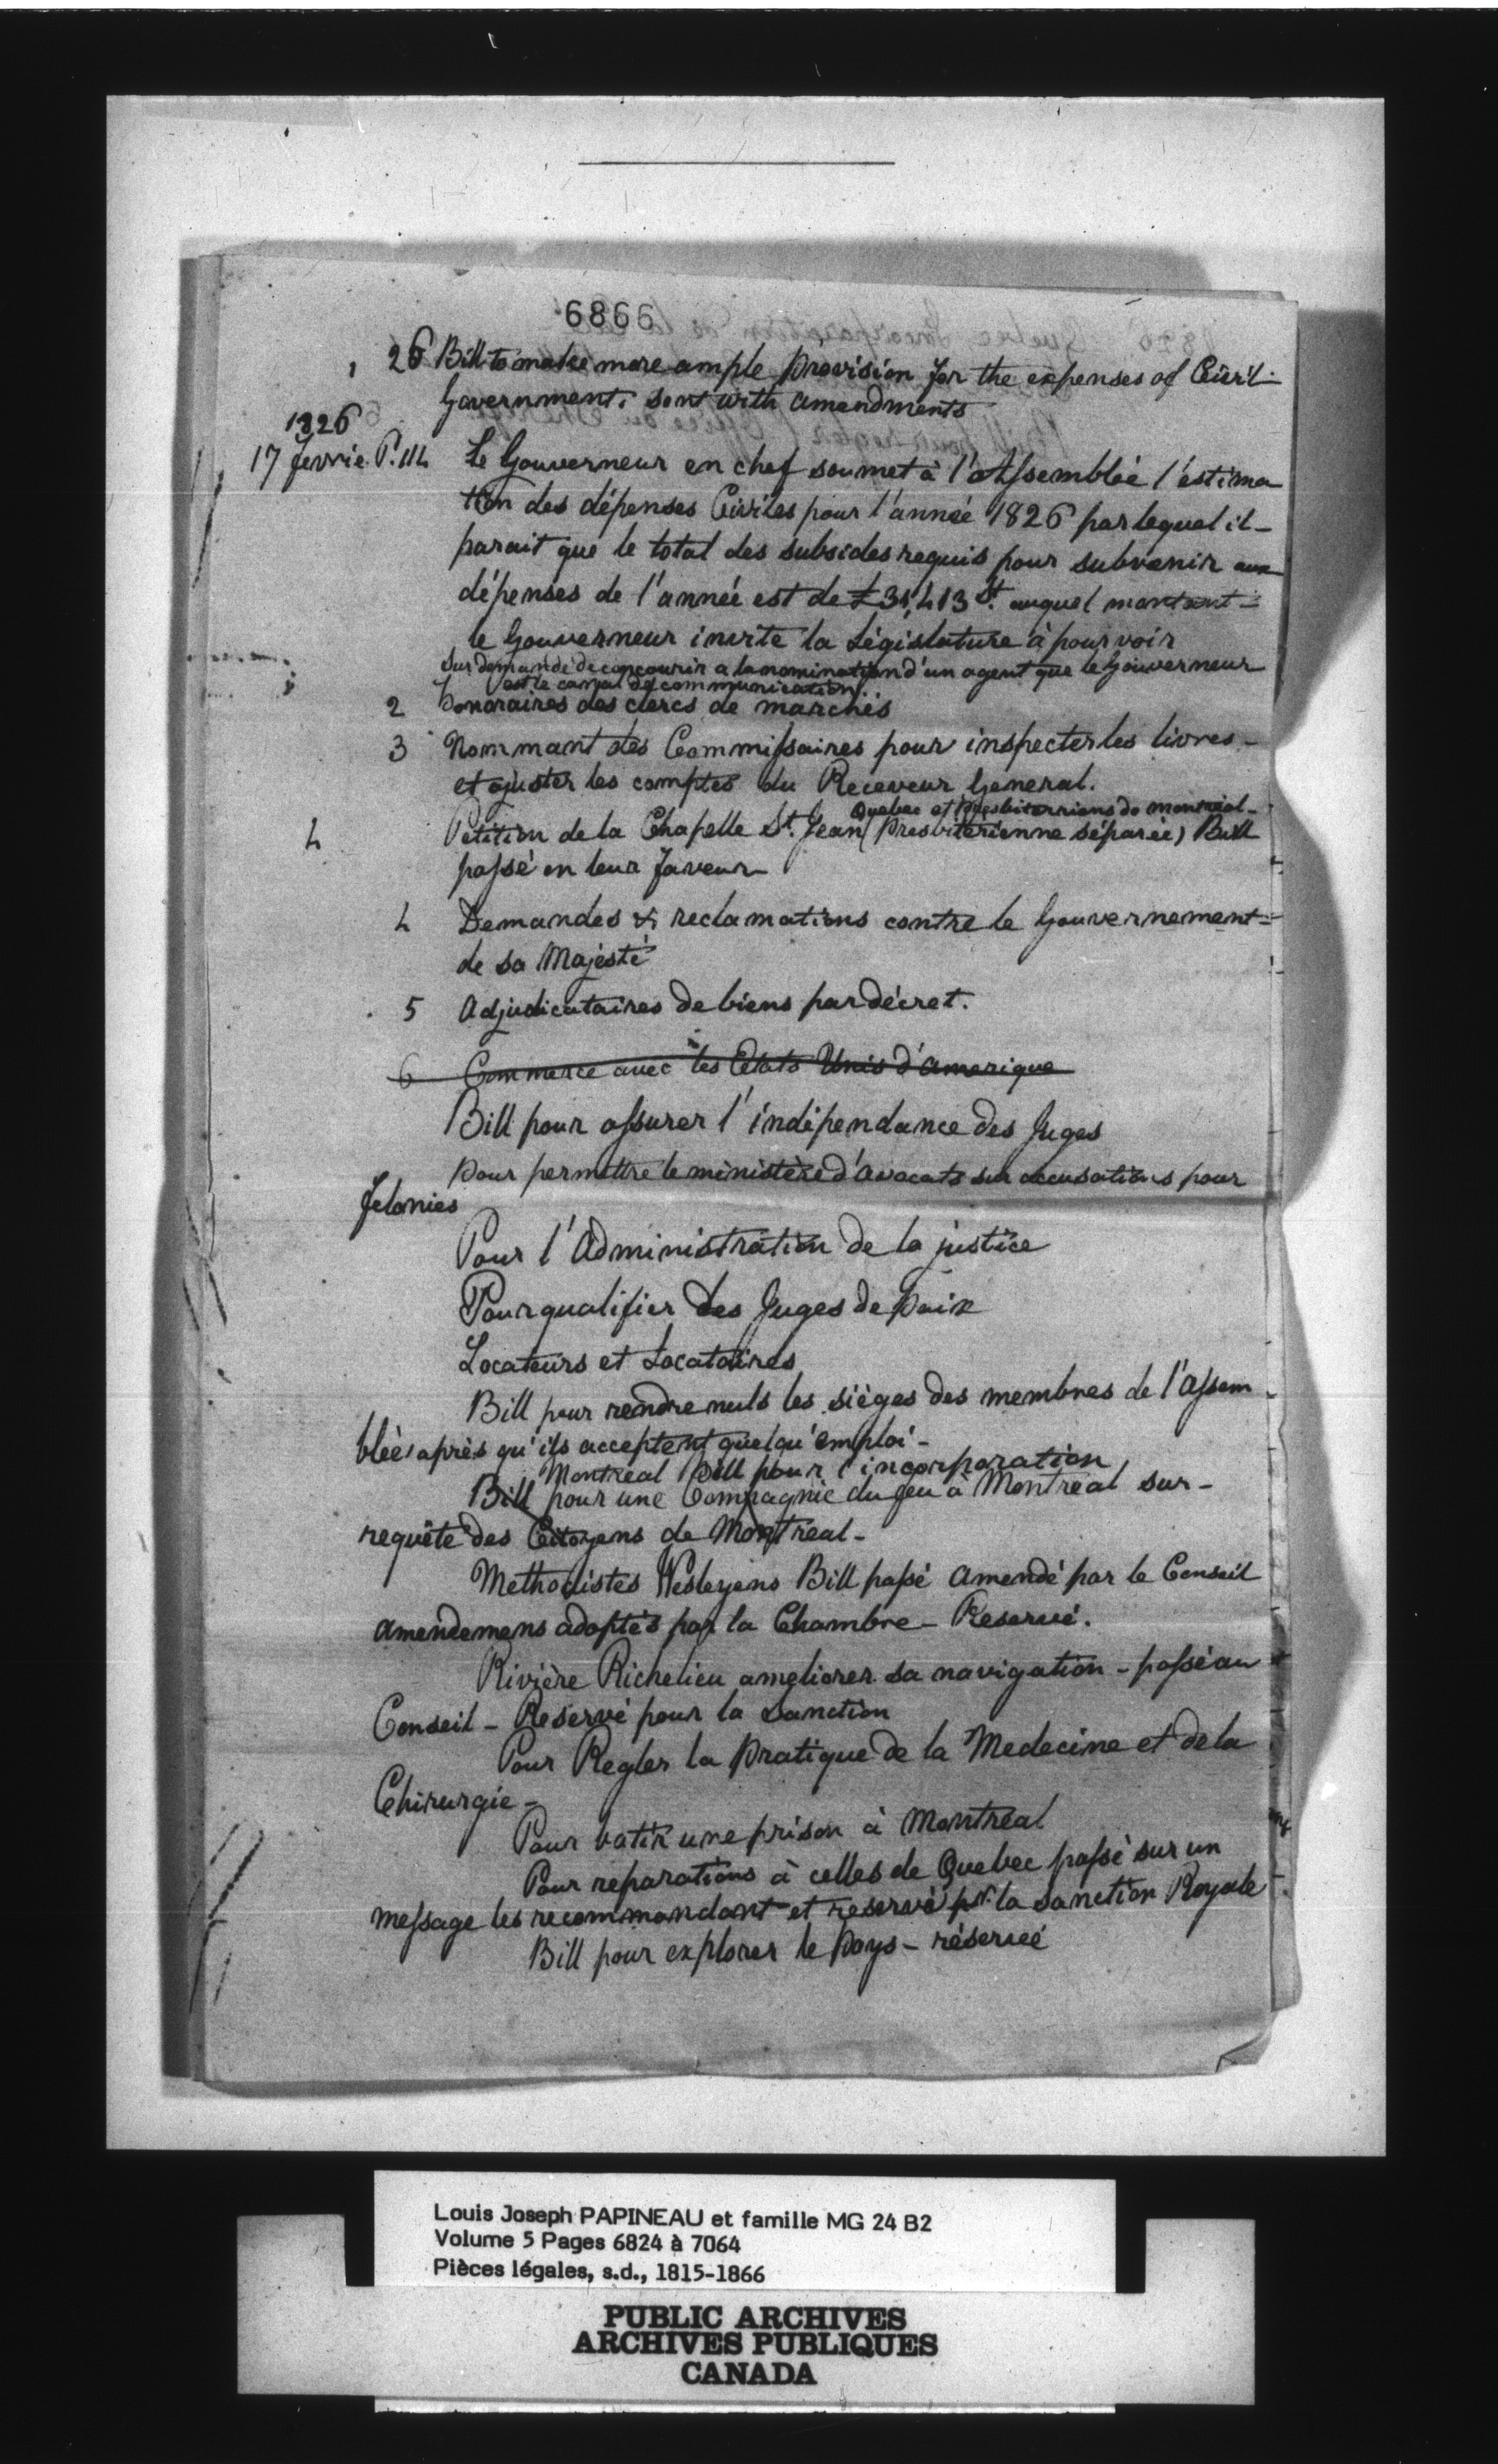 6866
1 26 Bill to make more ample provision for the expenses of Civil
Government. sent with amendments
1826
17 fevrie. P. 114 Le Gouverneur en chef soumet à l'Assemblée l'estima
tion des dépenses Civiles pour l'année 1826 par lequel il
parait que le total des subsides requis pour subvenir aux
dépenses de l'année est de £ 31,413 St. auquel montant
le Gouverneur invite la Législature à pourvoir
Sur demande de concourir a la nomination d'un agent que le Gouverneur
est le canal de communication.
2 honoraires des clercs de marchés
3 Nommant des Commissaires pour inspecter les livres
et ajuster les comptes du Receveur General.
Quebec et presbiteriens de montréal
4 Petition de la Chapelle St. Jean (Presbiterienne séparée) Bill
passé en leur faveur
4 Demandes & reclamations contre le Gouvernement
de sa Majésté
5 Adjudicataires de biens par décret.
6 Commerce avec les Etats Unis d'amerique
Bill pour assurer l'indépendance des Juges
Pour permettre le ministère d'avocats sur accusations pour
felonies
Pour l'Administration de la justice
Pour qualifier les Juges de Paix
Locateurs et Locataires
Bill pour rendre nuls les sièges des membres de l'assem
blée après qu'ils acceptent quelqu'emploi -
Montreal Bill pour l'incorporation
Bill pour une Compagnie du feu à Montréal sur
requête des Citoyens de Montréal -
Methodistes Wesleyens Bill passé amendé par le Conseil
Amendemens adoptés par la Chambre - Reservé.
Rivière Richelieu ameliorer sa navigation - passé au
Conseil - Reservé pour la Sanction
Pour Regler la Pratique de la Medecine et de la
Chirurgie -
Pour batir une prison à Montréal
Pour reparations à celles de Quebec passé sur un
message les recommandant et reservé pr. la sanction Royale
Bill pour explorer le Pays - réservé
Louis Joseph PAPINEAU et famille MG 24 B2
Volume 5 Pages 6824 à 7064
Pièces légales, s.d., 1815-1866
PUBLIC ARCHIVES
ARCHIVES PUBLIQUES
CANADA